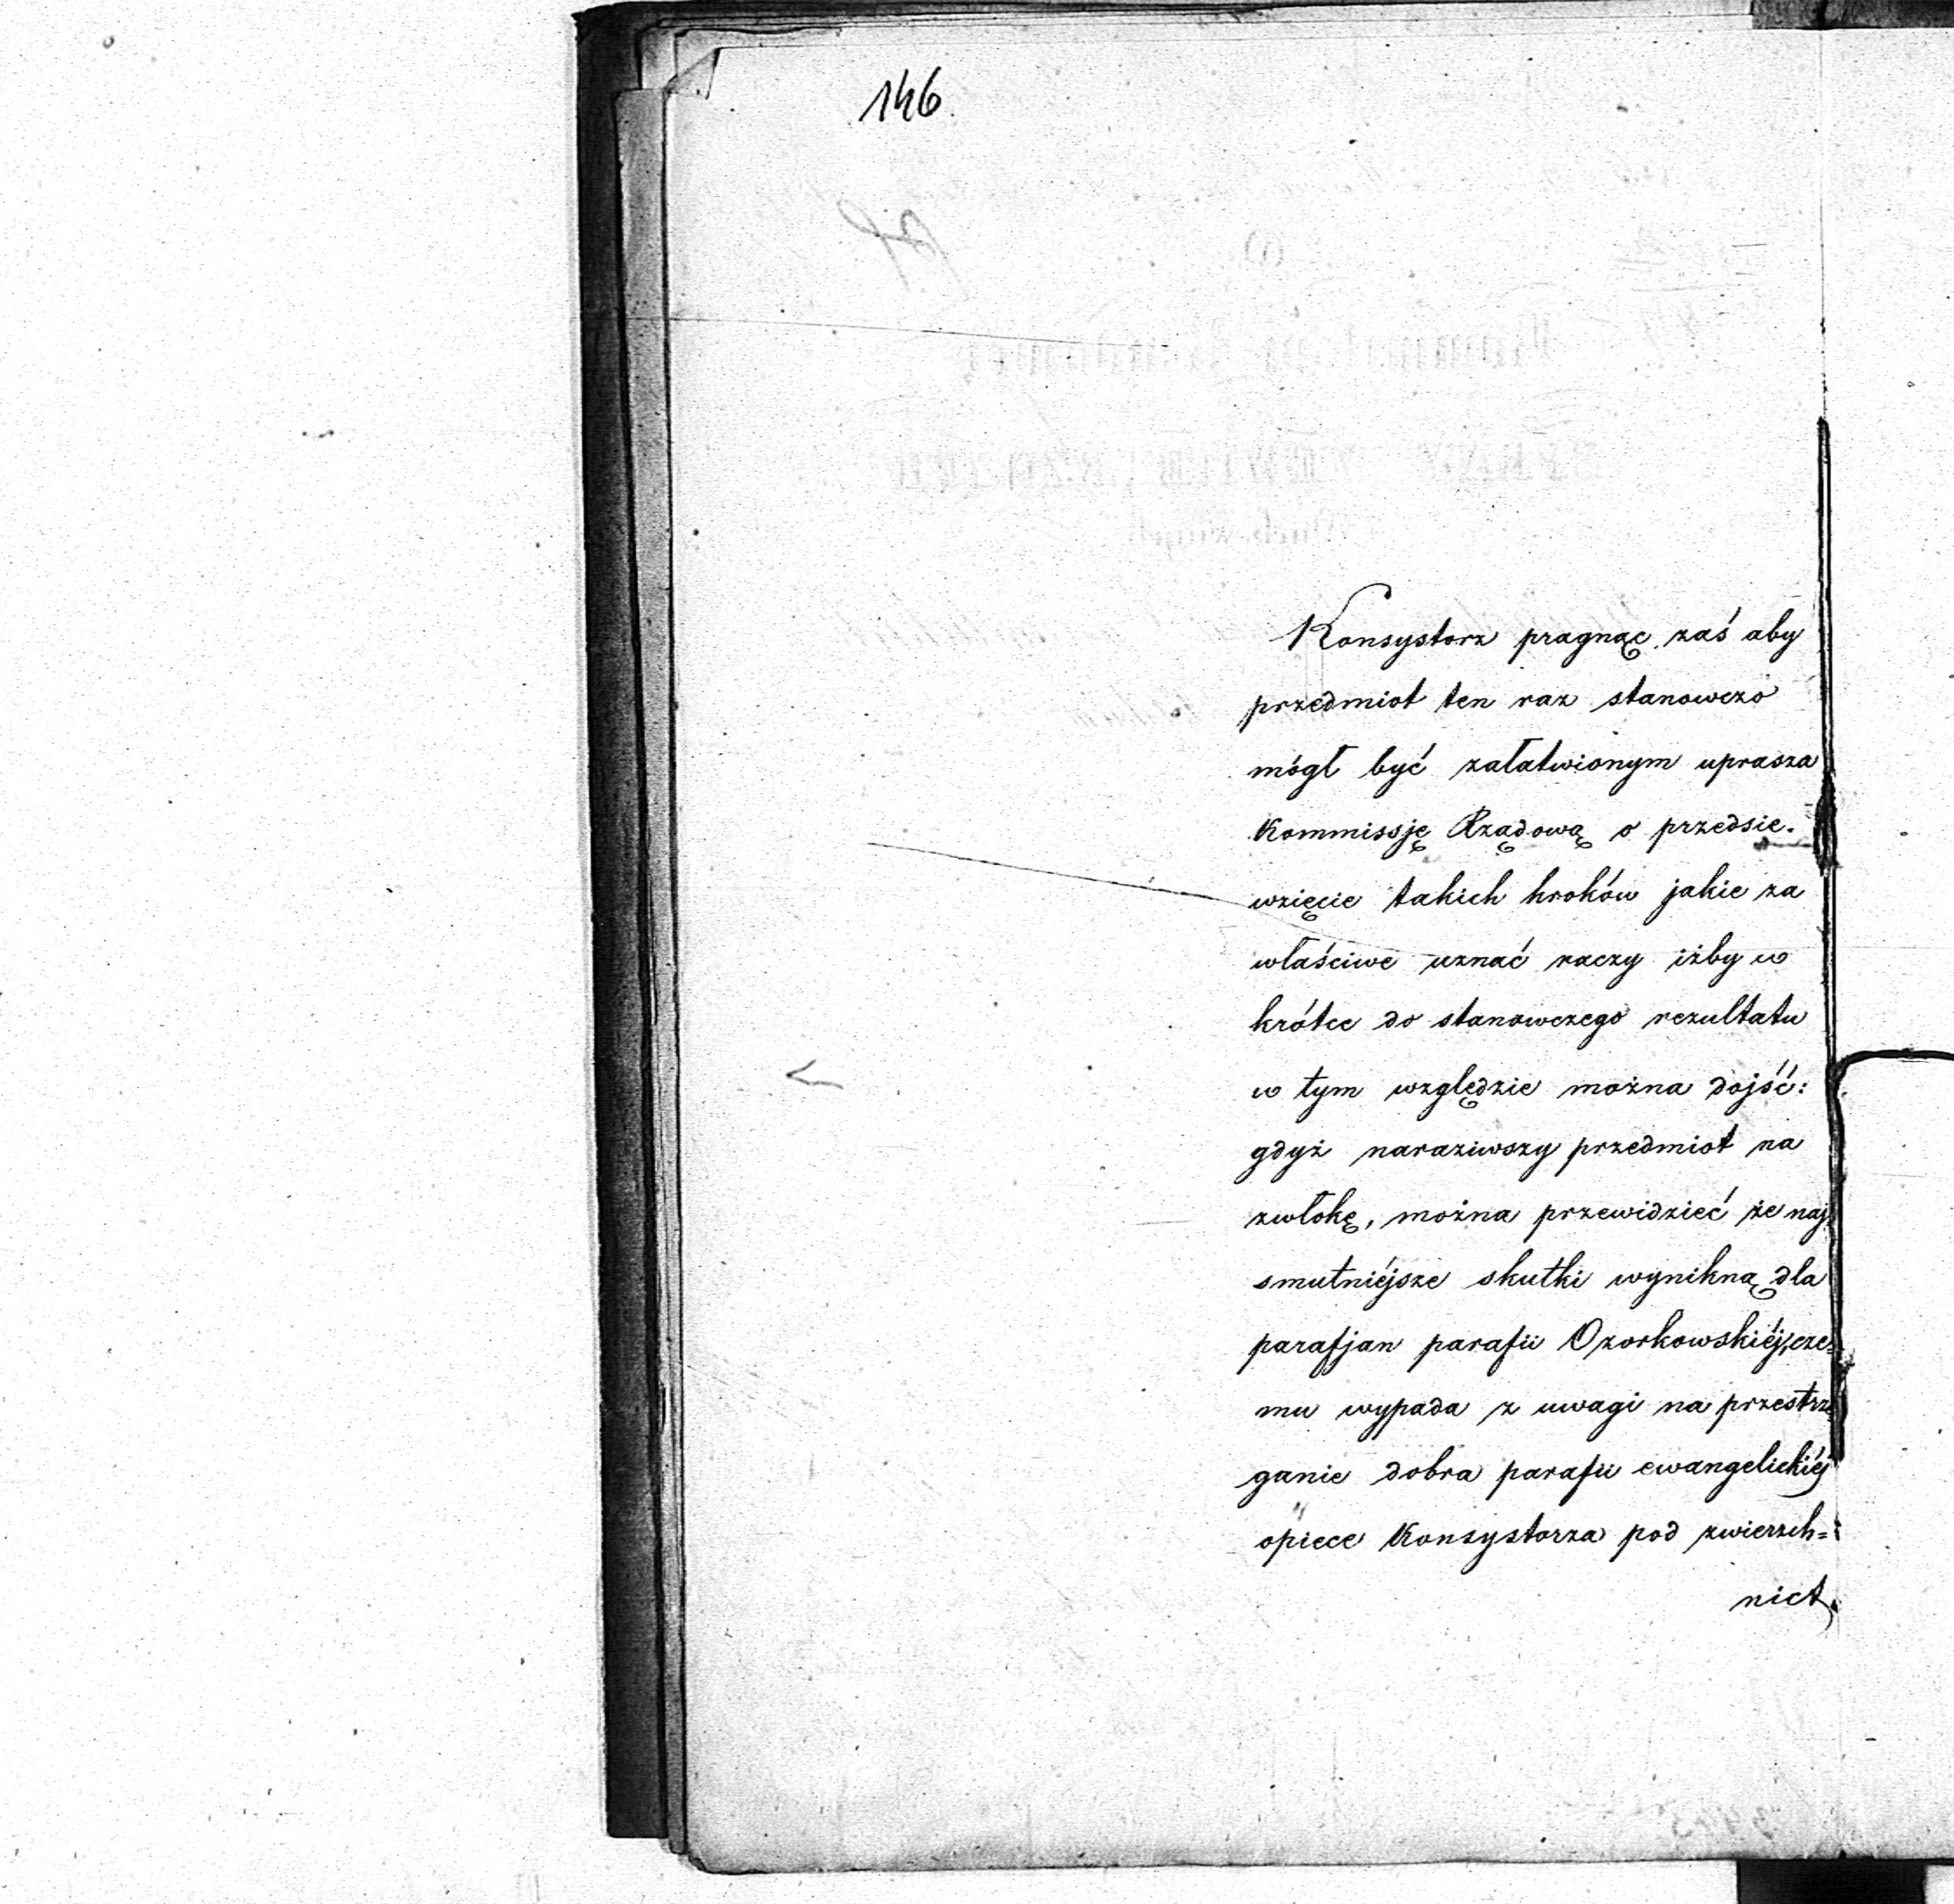 146
Konsystorz pragnąc zaś aby
przedmiot ten raz stanowczo
mógł być załatwionym uprasza
Kommissję Rządową o przedsie-
wzięcie takich kroków jakie za
właściwe uznać raczy iżby w
krótce do stanowczego rezultatu
w tym względzie można dojść:
gdyż naraziwszy przedmiot na
zwłokę, można przewidzieć że naj
smutniéjsze skutki wynikną dla
parafjan parafii Ozorkowskiéj, cze=
mu wypada z uwagi na przestrze
ganie dobra parafii ewangelickiéj
opiece Konsystorza pod zwierzch=
nict